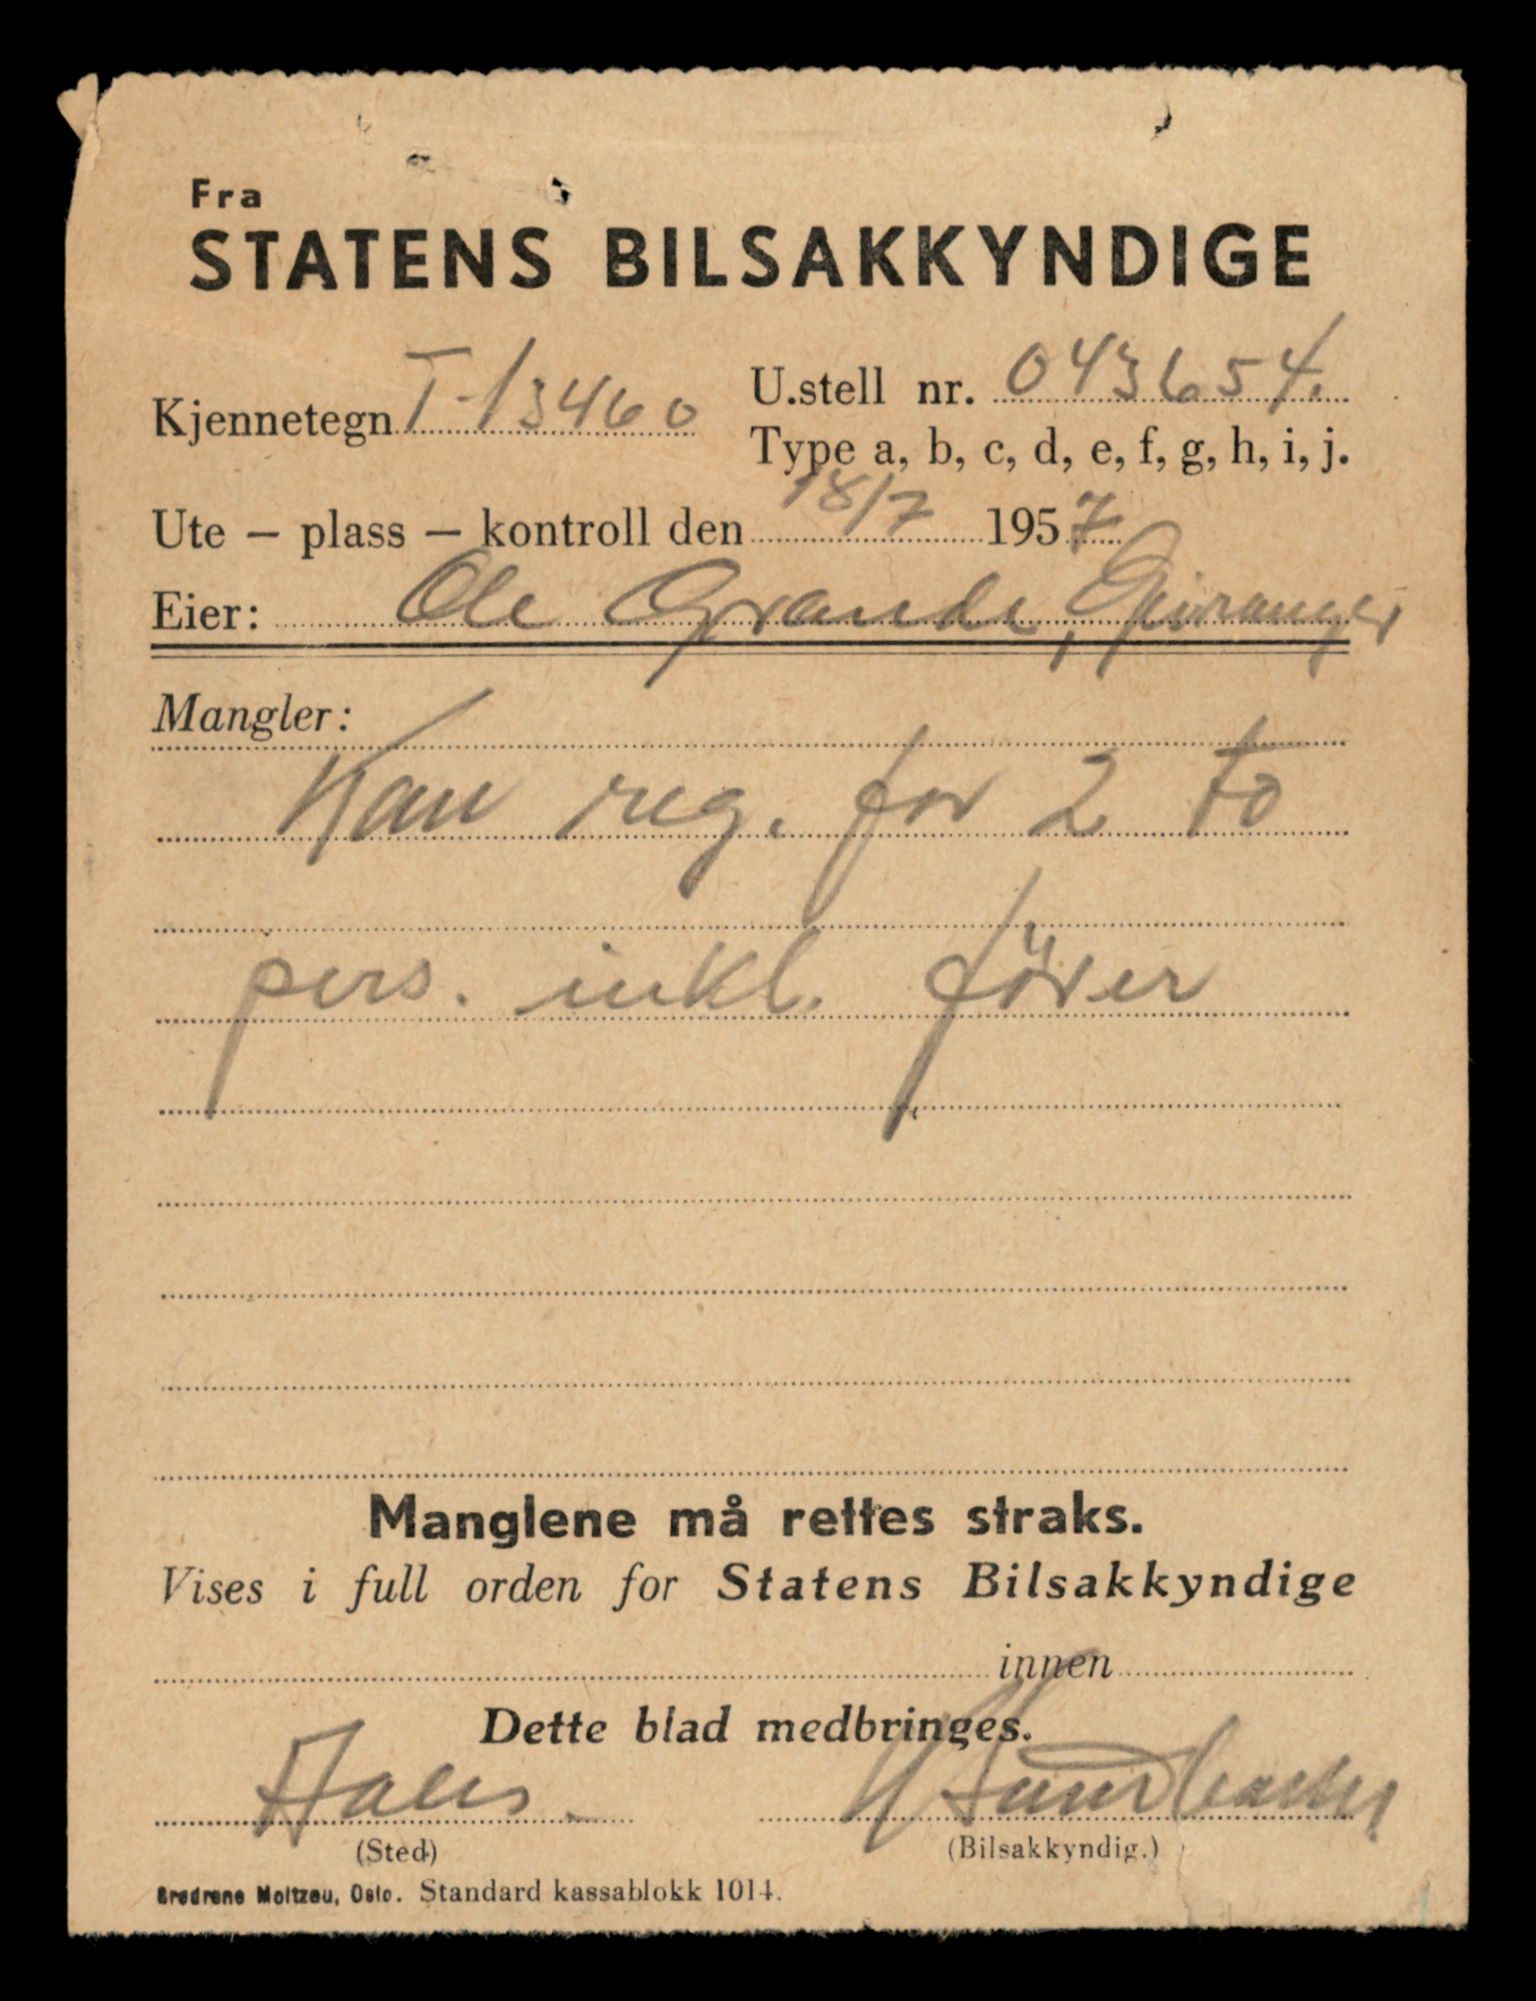 Fra
STATENS BILSAKKYNDIGE
Kjennetegn T-13460
U.stell nr. 043654.
Type a, b, c, d, e, f, g, h, i, j.
Ute – plass – kontroll den 18/7 1957
Eier: Ole Grande, Geiranger
Mangler:
Kan reg. for 2 to
pers. inkl. förer
Manglene må rettes straks.
Vises i full orden for Statens Bilsakkyndige
innen
Dette blad medbringes.
(Sted) (Bilsakkyndig.)
Brødrene Moltzau, Oslo. Standard kassablokk 1014.